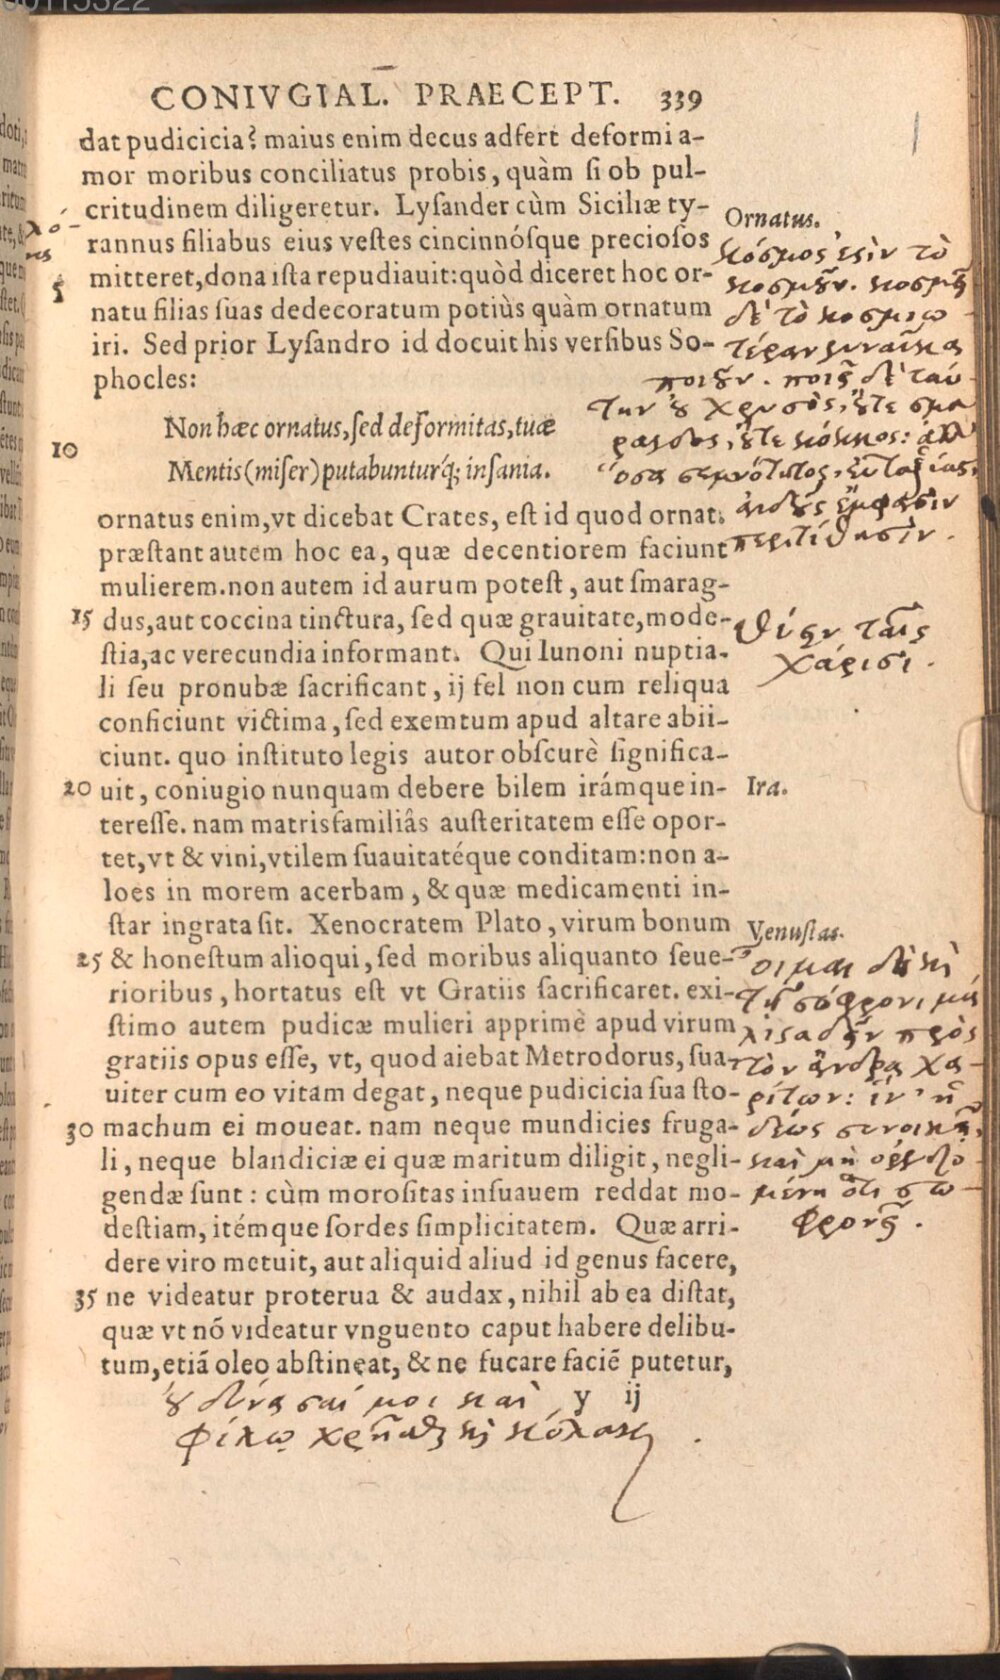 CONIVGIAL. PRAECEPT. 339
dat pudicicia? maius enim decus adfert deformi a-
mor moribus conciliatus probis, quàm si ob pul-
critudinem diligeretur. Lysander cùm Siciliæ ty-
rannus filiabus eius vestes cincinnósque preciosos
5 mitteret, dona ista repudiauit: quòd diceret hoc or-
natu filias suas dedecoratum potiùs quàm ornatum
iri. Sed prior Lysandro id docuit his versibus So-
phocles:
Non hæc ornatus, sed deformitas, tuæ
10 Mentis (miser) putabuntúrq; insania.
ornatus enim, vt dicebat Crates, est id quod ornat.
præstant autem hoc ea, quæ decentiorem faciunt
mulierem. non autem id aurum potest, aut smarag-
15 dus, aut coccina tinctura, sed quæ grauitate, mode-
stia, ac verecundia informant. Qui Iunoni nuptia-
li seu pronubæ sacrificant, ij fel non cum reliqua
conficiunt victima, sed exemtum apud altare abii-
ciunt. quo instituto legis autor obscurè significa-
20 uit, coniugio nunquam debere bilem irámque in-
teresse. nam matrisfamiliâs austeritatem esse opor-
tet, vt & vini, vtilem suauitatéque conditam: non a-
loes in morem acerbam, & quæ medicamenti in-
star ingrata sit. Xenocratem Plato, virum bonum
25 & honestum alioqui, sed moribus aliquanto seue-
rioribus, hortatus est vt Gratiis sacrificaret. exi-
stimo autem pudicæ mulieri apprimè apud virum
gratiis opus esse, vt, quod aiebat Metrodorus, sua-
uiter cum eo vitam degat, neque pudicicia sua sto-
30 machum ei moueat. nam neque mundicies fruga-
li, neque blandiciæ ei quæ maritum diligit, negli-
gendæ sunt: cùm morositas insuauem reddat mo-
destiam, itémque sordes simplicitatem. Quæ arri-
dere viro metuit, aut aliquid aliud id genus facere,
35 ne videatur proterua & audax, nihil ab ea distat,
quæ vt nō videatur vnguento caput habere delibu-
tum, etiā oleo abstineat, & ne fucare faciē putetur,
y ij
Ornatus.
κόσμος ἐστὶν τὸ
κοσμοῦν. κοσμεῖ
δὲ τὸ κοσμιω-
τέραν γυναῖκα
ποιοῦν. ποιεῖ δὲ ταύ-
την οὐ χρυσὸς, οὔτε σμα
ραγδος, οὔτε κόκκος: ἀλλ'
ὅσα σεμνότητος, εὐταξίας,
αἰδοῦς ἔμφασιν
περιτίθησιν.
θύειν ταῖς
χάρισι.
Ira.
Venustas.
οἶμαι δὲ καὶ
τῇ σώφρονι μά
λιστα δεῖν πρὸς
τὸν ἄνδρα χα-
ρίτων: ἵν' ἡ
δέως συνοικῇ,
καὶ μὴ ὀργιζο-
μένη ὅτι σω-
φρονεῖ.
οὐ δύνασαί μοι καὶ
φίλῳ χρῆσθαι καὶ κόλακι.